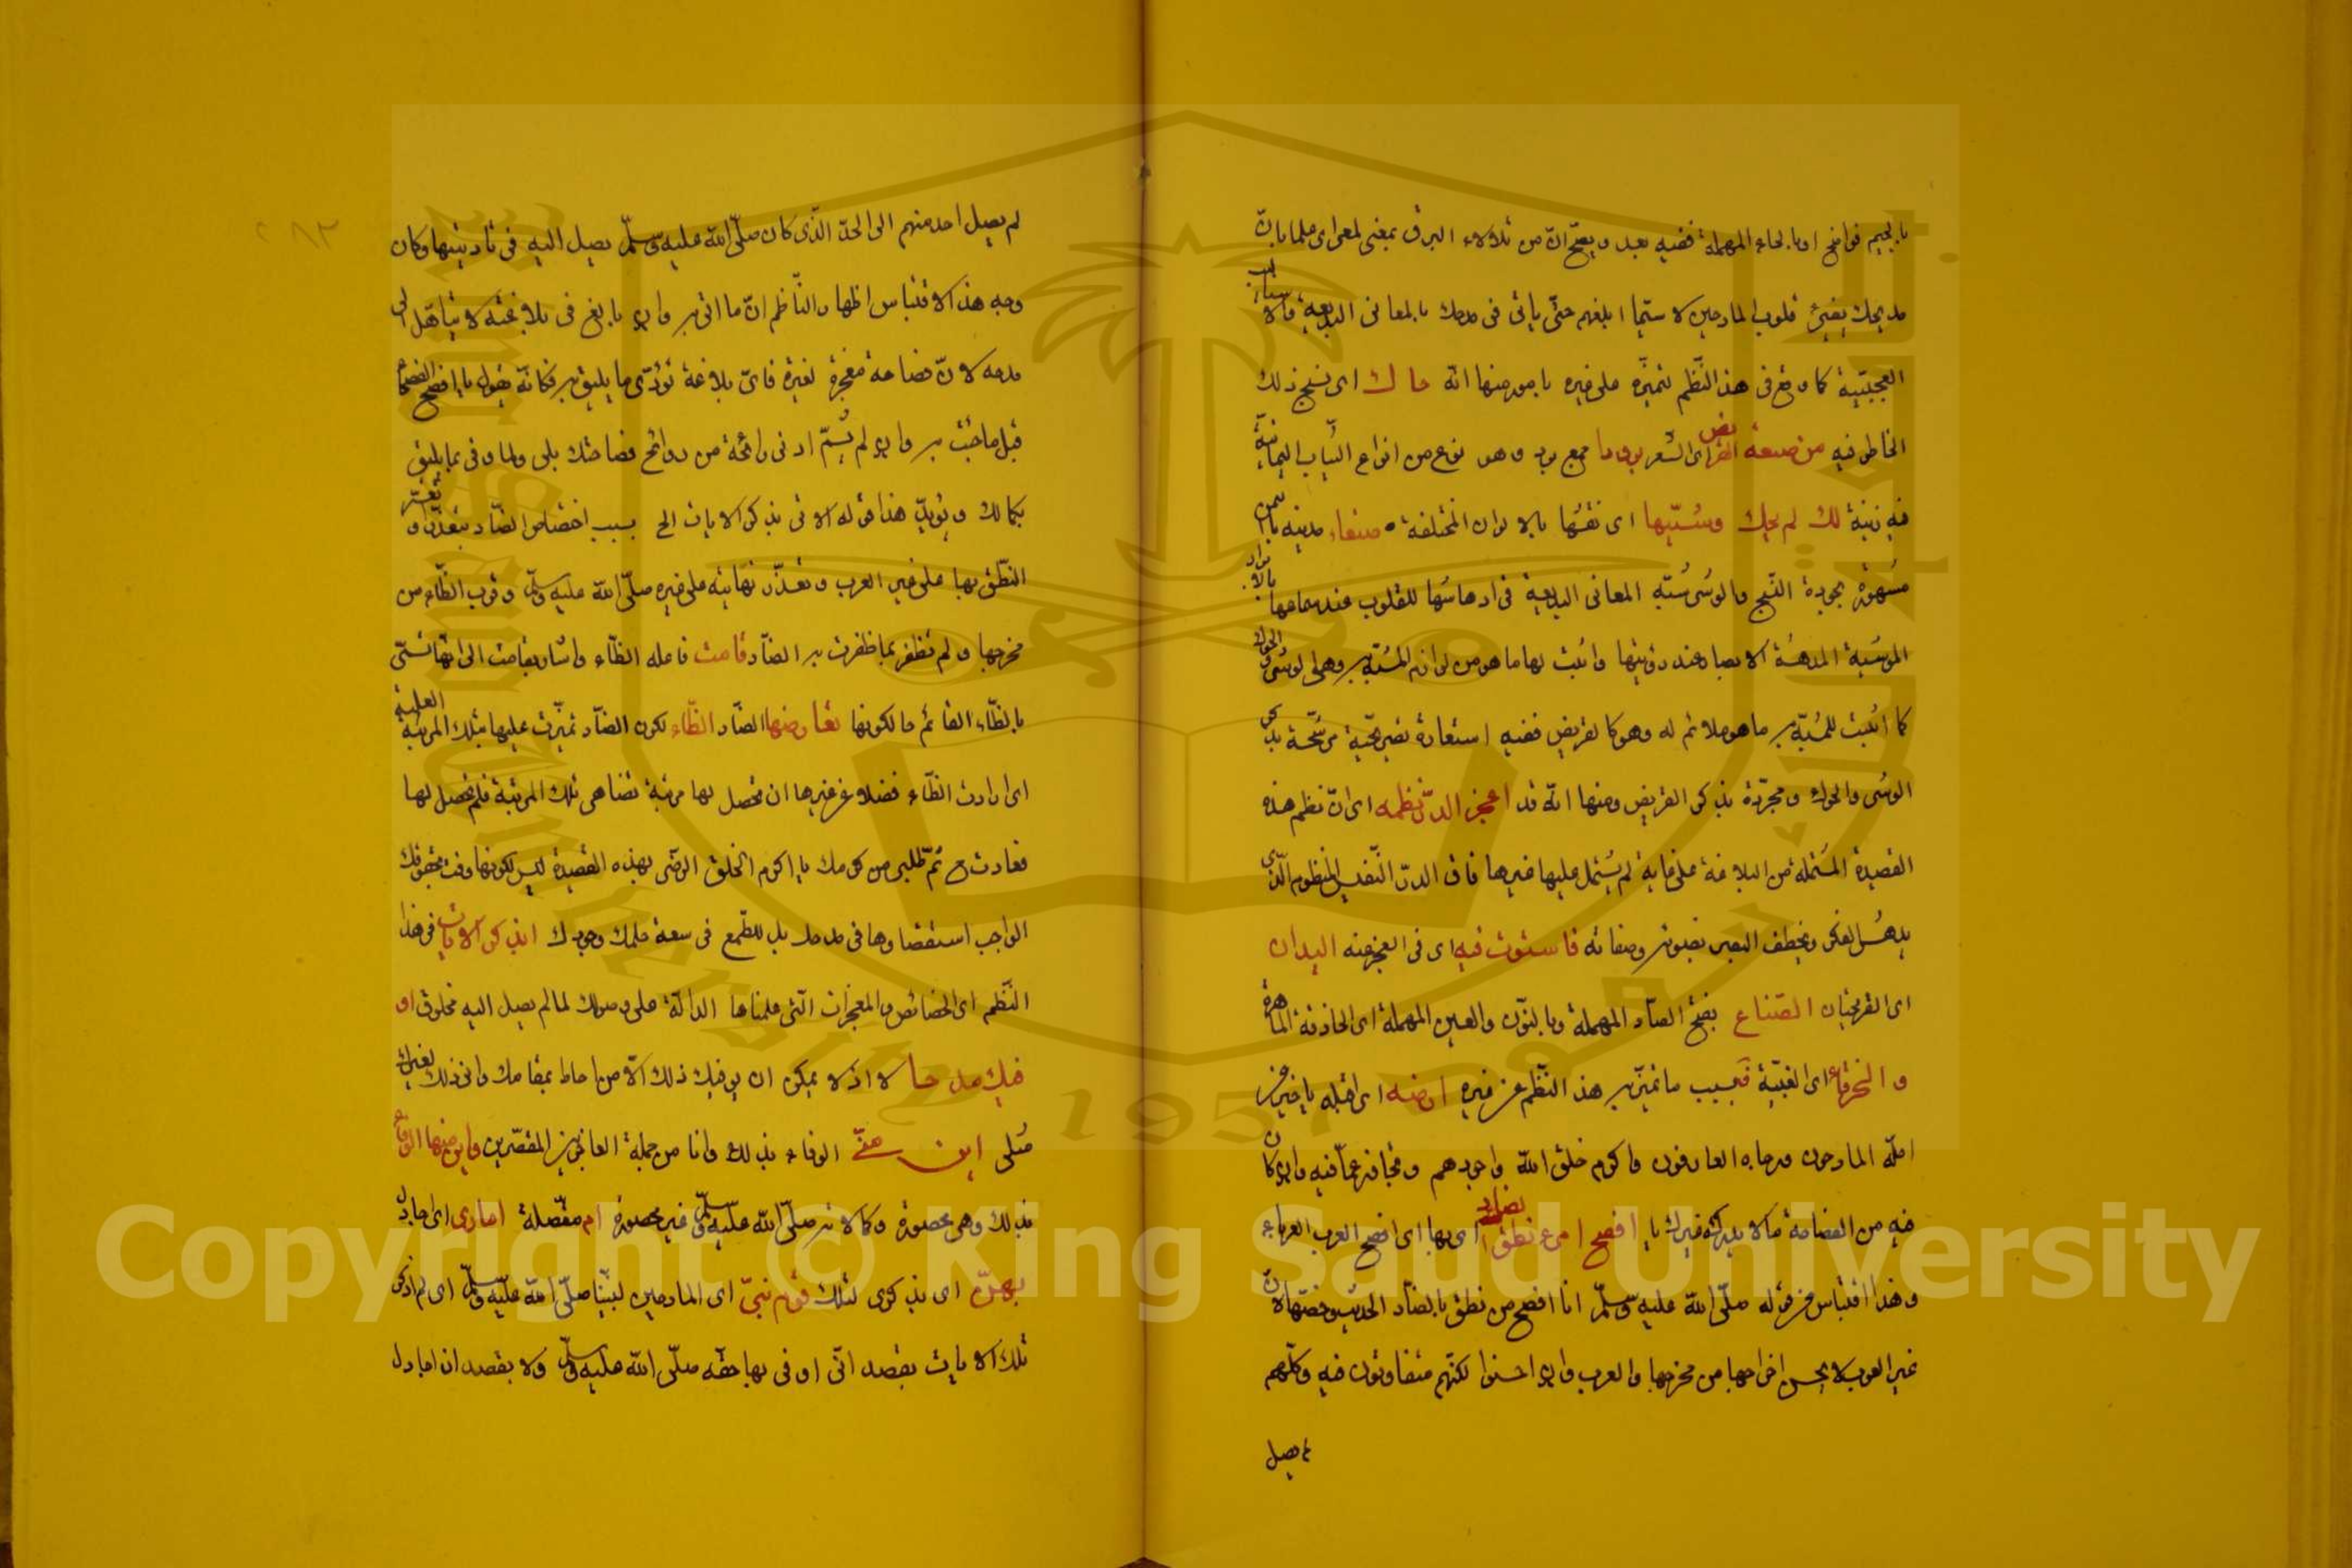 بالجيم فواضح او بالحاء المهملة ففيه بعد ويصح انه من تلألاء البرق بمعنى لمع اى علما بان
مديحك يضئ قلوب المادحين لا سيما ابلغهم حتى ياتى فى مدحك بالمعانى البديعة والاساليب
العجيبة كما وقع فى هذا النظم لتميزه على غيره بامور منها انه حاك اى نسج ذلك
الخاطر فيه من صنعة القريض اى الشعر برودا جمع برد وهو نوع من انواع الثياب اليمانية
فيه زينة لك لم يحك وشيها اى نقشها بالالوان المختلفة صنعاء مدينة باليمن
مشهورة بجودة النسج والوشى شبه المعانى البديعة فى ادهاشها للقلوب عند سماعها بالابراد
الموشية المدهشة الابصار عند رؤيتها واثبت لها ما هو من لوازم المشبه به وهو الوشى والحوك
كما اثبت للمشبه ما هو ملائم له وهو كالقريض ففيه استعارة تصريحية مرشحة بذكر
الوشى والحوك ومجردة بذكر القريض ومنها انه قد اعجز الدر نظمه اى ان نظم هذه
القصيدة المشتملة من البلاغة على غاية لم يشتمل عليها غيرها فاق الدر النفيس المنظوم الذى
يدهش الفكر ويخطف البصر بصونه وصفائه فاستوت فيه اى فى العجز عنه اليدان
اى القريحتان الصناع بفتح الصاد المهملة وبالنون والعين المهملة اى الحاذقة الماهرة
والخرقاء اى الغبية فبسبب ما تميز به هذا النظم عن غيره ارضه اى اقبله يا خير من
امله المادحون ورجاه العارفون واكرم خلق الله واجودهم وتجاوز عما فيه وان كان
فيه من الفصاحة ما لا يدركه غيرك يا افصح امرء نطق الضاد اى بها اى افصح العرب العرباء
وهذا اقتباس من قوله صلى الله عليه وسلم انا افصح من نطق بالضاد الحديث وخصها لان
غير العرب لا يحسن اخراجها من مخرجها والعرب وان احسنوا لكنهم متفاوتون فيه وكلهم
لم يصل
لم يصل احد منهم الى الحد الذى كان صلى الله عليه وسلم يصل اليه فى تاديتها وكان
وجه هذا الاقتباس اظهار الناظم ان ما اتى به وان بالغ فى بلاغته لا يتأهل الى
مدحه لان فصاحته معجزة لغيره فاى بلاغة تؤدى ما يليق به فكانه يقول يا افصح الفصحاء
قبل ما جئت به وان لم يشم ادنى رائحة من روائح فصاحتك بلى ولا وفى بما يليق
بكمالك ويؤيد هذا قوله الاتى بذكر الايات الخ بسبب اختصاص الضاد بتعذر او تعسر
النطق بها على غير العرب وتعذر نهايته على غيره صلى الله عليه وسلم وقرب الظاء من
مخرجها ولم تظفر بما ظفرت به الضاد قامت فاعله الظاء واشار بقامت الى انها تسمى
بالظاء القائم حالكونها تغار منها الضاد الظاء لكون الضاد تميزت عليها بتلك المرتبة العلية
اى ارادت الظاء فضلا عن غيرها ان تحصل لها مرتبة تضاهى تلك المرتبة فلم يحصل لها
فغارت ح ثم طلبى من كرمك يا اكرم الخلق الرضى بهذه القصيدة ليس لكونها وفت بحقوقك
الواجب استقصاؤها فى مدحك بل للطمع فى سعة حلمك وجودك ابذكر الايات فى هذا
النظم اى الخصائص والمعجزات التى علمناها الدالة على وصولك لما لم يصل اليه مخلوق او
فيك مدحا لا اذ لا يمكن ان يوفيك ذلك الا من احاط بمقامك وانى ذلك لغيرك
مثلى اين منى الوفاء بذلك وانا من جملة العاجزين المقصرين واين منها الوفاء
بذلك وهى محصورة وكمالاته صلى الله عليه وسلم غير محصورة ام مفصلة امارى اى اجادل
بهن اى بذكرى لتلك قوم نبى اى المادحين لنبينا صلى الله عليه وسلم اى لم اذكر
تلك الايات بقصد انى اوفى بها حقه صلى الله عليه وسلم ولا بقصد ان اجادل